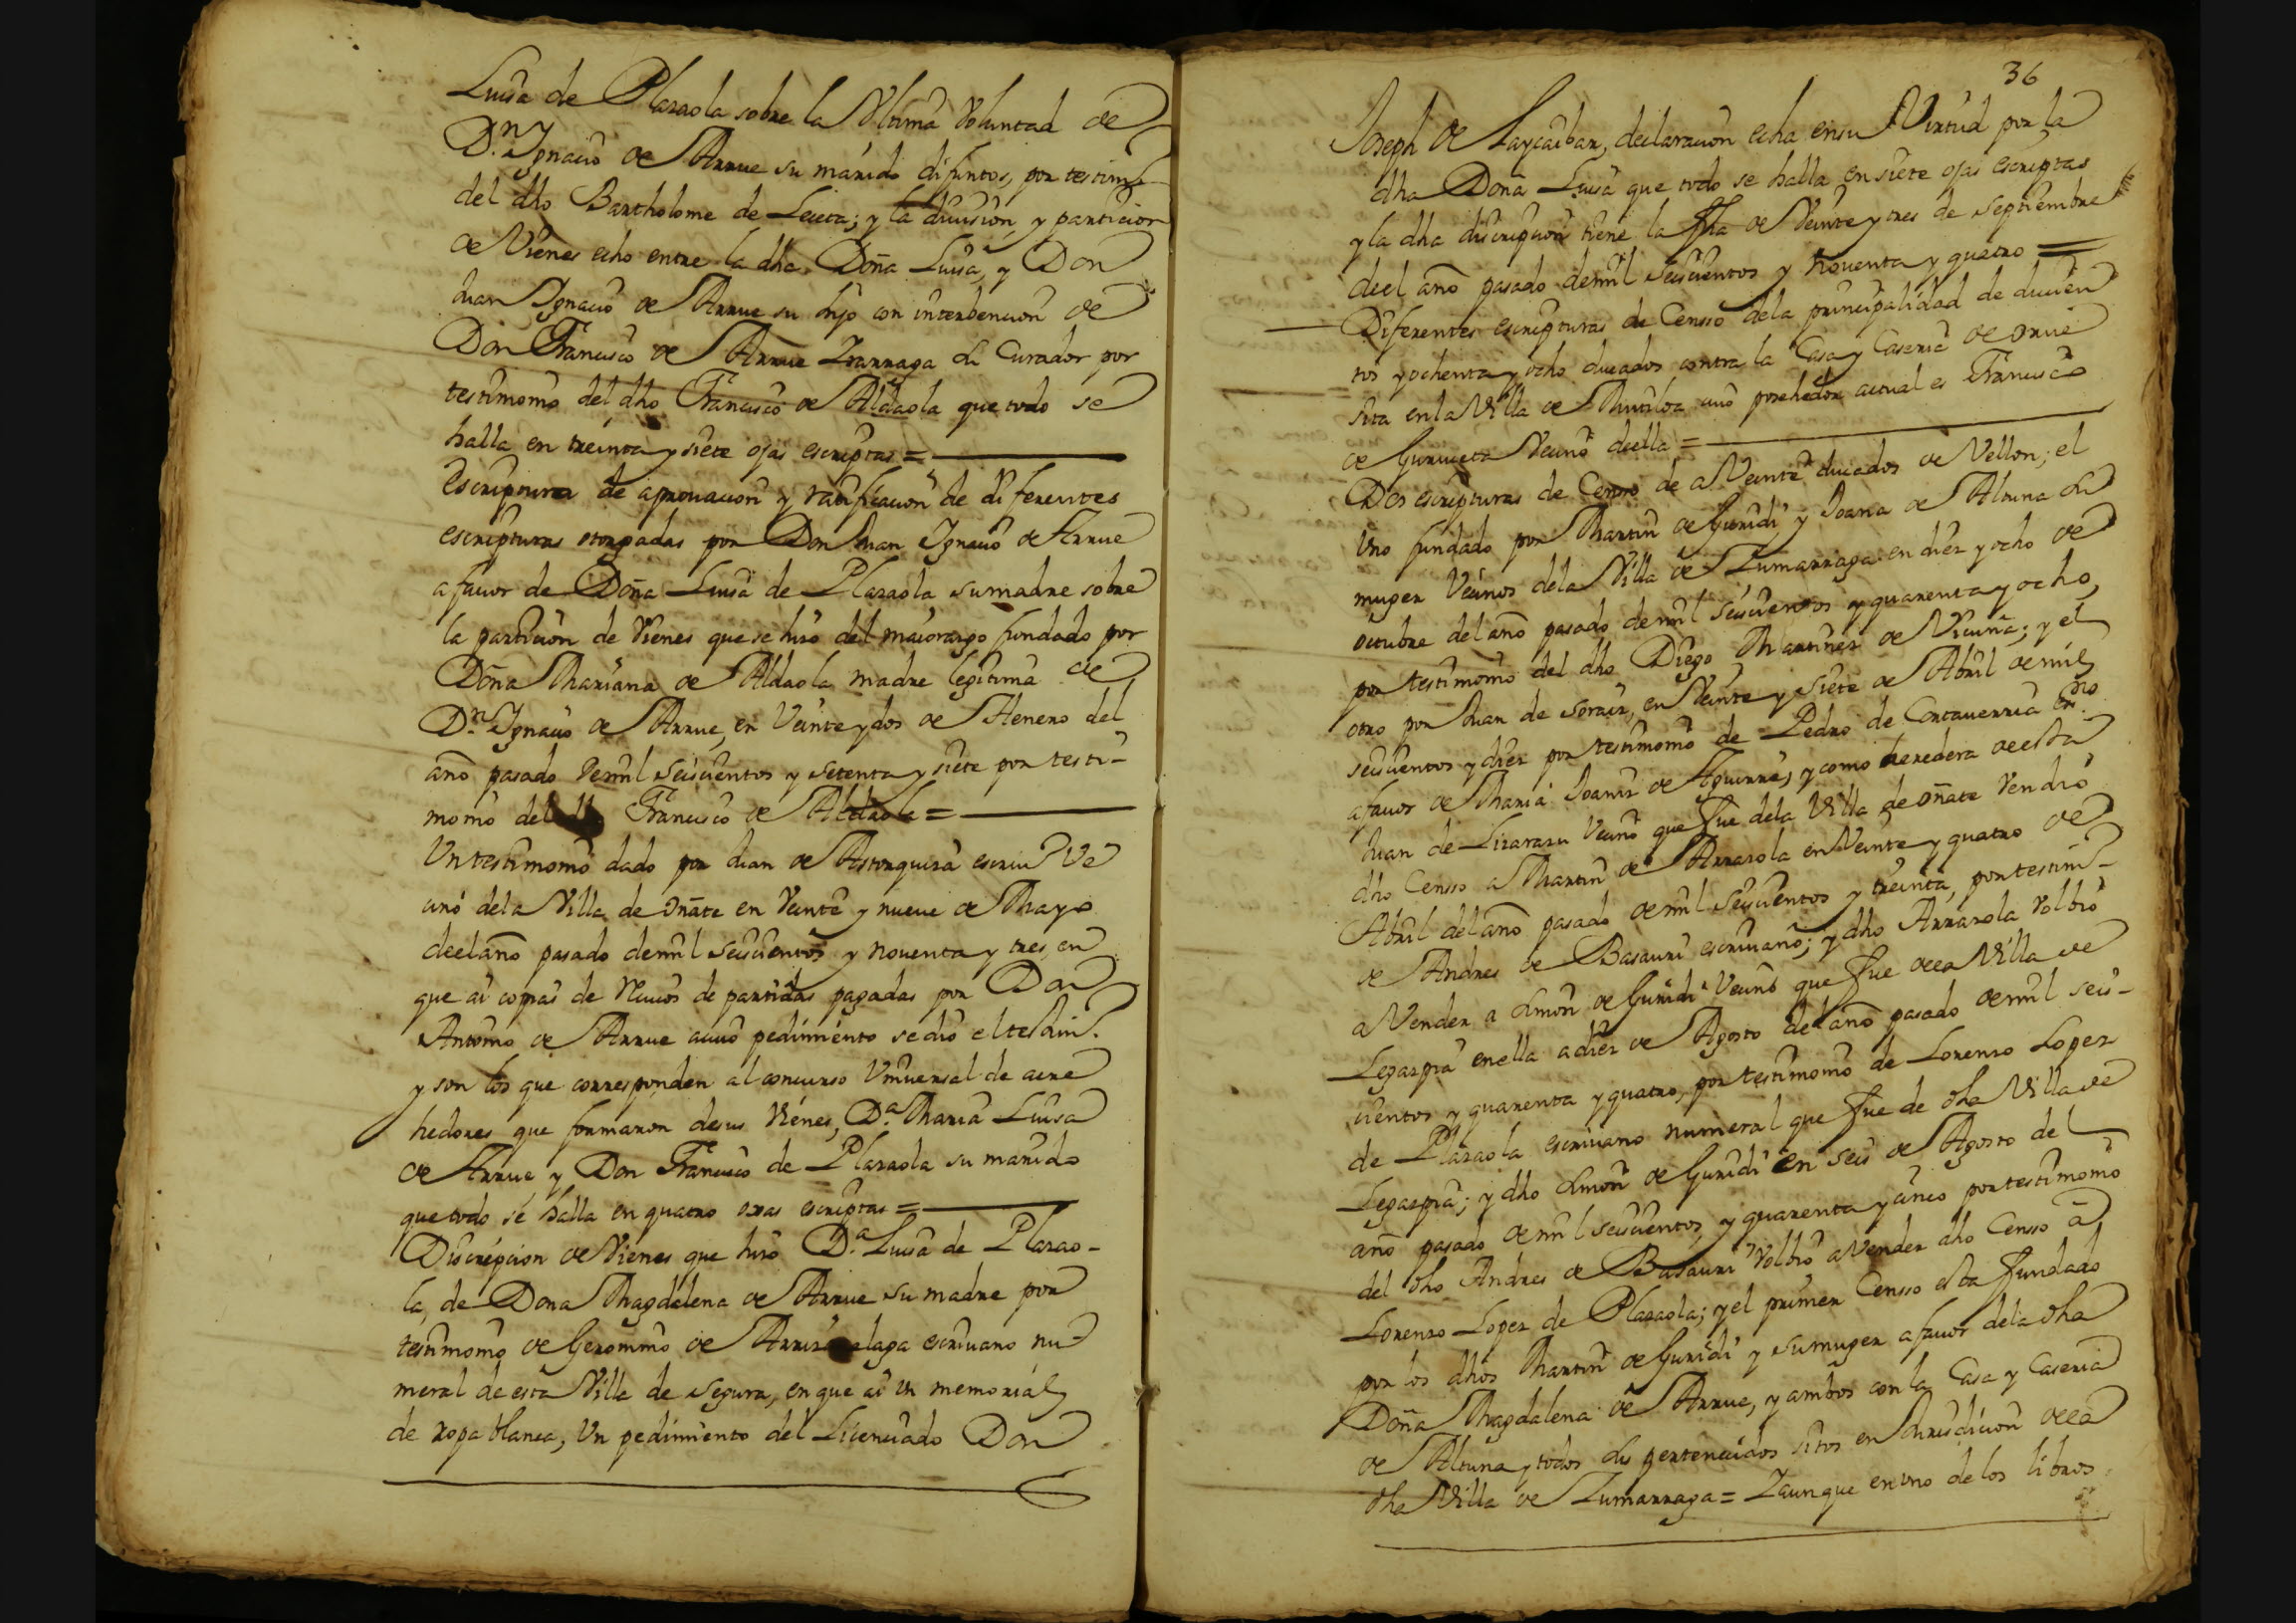 Luisa de Plazaola sobre la Vltima Voluntad de
D.n Ygnacio de Arrue su marido difuntos, por testim.o
del dho Bartholome de Leceta; y la diuision, y particion
de Vienes echo entre la dha Doña Luisa, y Don
Juan Ygnacio de Arrue su hijo con interbencion de
Don Francisco de Arrue Yzarraga su Curador por
testimonio del dho Francisco de Aldaola que todo se
halla en treinta y siete ojas escriptas =
Escriptura de aprouacion y ratificacion de diferentes
escripturas otorgadas por Don Juan Ygnacio de Arrue
a fauor de Doña Luisa de Plazaola su madre sobre
la particion de Vienes que se hizo del maiorazgo fundado por
Doña Mariana de Aldaola madre legitima de
D.n Ygnacio de Arrue, en Veinte y dos de Henero del
año pasado de mil seiscientos y setenta y siete por testi-
monio del Francisco de Aldaola =
Un testimonio dado por Juan de Astorquiza escriu.o Ve
cino de la Villa de Oñate en Veinte y nueue de Mayo
de el año pasado de mil seiscientos y nouenta y tres, en
que ai copias de Reciuos de partidas pagadas por Don
Antonio de Arrue a cuio pedimiento se dio el testim.o
y son los que corresponden al concurso Vniuersal de acre
hedores que formaron de sus Vienes, D.a Maria Luisa
de Arrue y Don Francisco de Plazaola su marido
que todo se halla en quatro oxas escriptas =
Discripcion de Vienes que hizo D.a Luisa de Plazao-
la, de Dona Magdalena de Arrue su madre por
testimonio de Geronimo de escriuano nu-
meral de esta Villa de Segura, en que ai un memorial
de ropa blanca, Un pedimiento del Licenciado Don
36
Joseph de Laycaibar, declaracion echa en su Virtud por la
dha Dona Luisa que todo se halla en siete ojas escriptas
y la dha discripcion tiene la fha de Veinte y tres de septiembre
de el año pasado de mil seiscientos y nouenta y quatro =
Diferentes escripturas de Censso de la principalidad de ducien
tos y ochenta y ocho ducados contra la Casa y Caseria de Orue
sita en la Villa de Mutiloa cuio porehedor actual es Francisco
de Gurruceta Vecino de ella =
Dos escripturas de Censo de a Veinte ducados de Vellon; el
Vno fundado por Martin de Guridi y Joana de Altuna su
muger Vecinos de la Villa de Zumarraga en diez y ocho de
octubre del año pasado de mil seiscientos y quarenta y ocho,
por testimonio del dho Diego Martinez de Vicuña; y el
otro por Juan de Soraiz, en Veinte y siete de Abril de mil
seiscientos y diez por testimonio de Pedro de Contauerria en.no
a fauor de Maria Joaniz de Aguirre, y como heredera de esta
Juan de Lizarazu Vecino que fue de la Villa de Oñate Vendio
dho Censso a Martin de Arrazola en Veinte y quatro de
Abril del año pasado de mil seiscientos y treinta, por testim.o
de Andres de Basauri escriuano; y dho Arrazola volbio
a Vender a Simon de Guridi Vecino que fue de la Villa de
Legazpia en ella a diez de Agosto del año pasado de mil seis-
cientos y quarenta y quatro, por testimonio de Lorenzo Lopez
de Plazaola escriuano numeral que fue de dha Villa de
Legazpia; y dho Simon de Guridi en seis de Agosto del
año pasado de mil seiscientos, y quarenta y cinco por testimonio
del dho Andres de Basauri volbio a Vender dho Censso a
Lorenzo Lopez de Plazaola; y el primer Censso esta fundado
por los dhos Martin de Guridi y su muger a fauor de la dha
Doña Magdalena de Arrue, y ambos con la Casa y Caseria
de Altuna y todos sus pertenecidos sitos en Jurisdicion de la
dha Villa de Zumarraga = Y aunque en uno de los libros